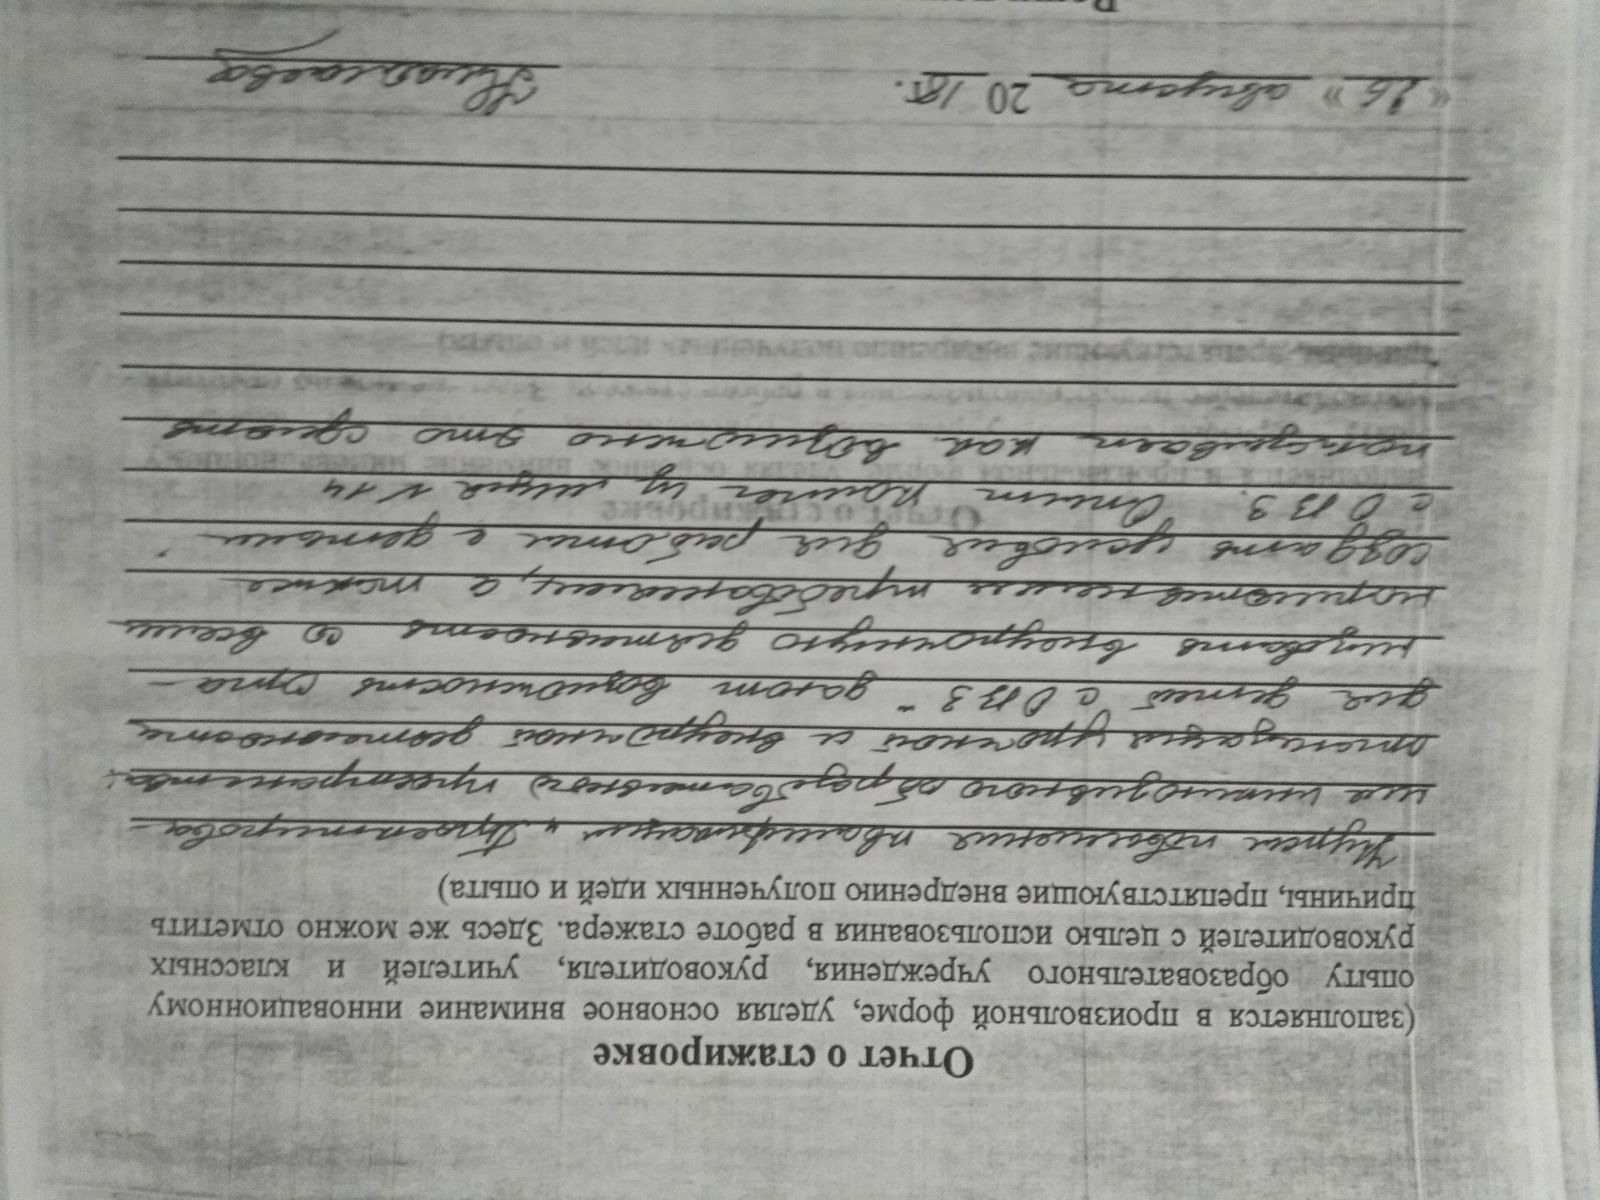 Отчет о стажировке
(заполняется в произвольной форме, уделяя основное внимание инновационному
опыту образовательного учреждения, руководителя, учителей и классных
руководителей с целью использования в работе стажера. Здесь же можно отметить
причины, препятствующие внедрению полученных идей и опыта)
Курсы повышения квалификации "Проектирова-
ние инклюзивного образовательного пространства:
организация урочной и внеурочной деятельности
для детей с ОВЗ" дают возможность орга-
низовать внеурочную деятельность со всеми
нормативными требованиями, а также
создать условия для работы с детьми
с ОВЗ. Опыт коллег из лицея №14
показывает как возможно это сделать
«26» августа 20 18г.